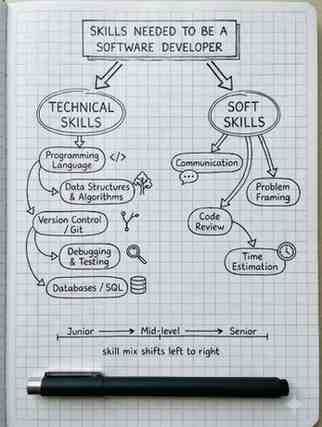 SKILLS NEEDED TO BE A
SOFTWARE DEVELOPER
TECHNICAL
SKILLS
Programming
Language
</>
Data Structures
& Algorithms
Version Control
/ Git
Debugging
& Testing
Databases / SQL
SOFT
SKILLS
Communication
Problem
Framing
Code
Review
Time
Estimation
Junior
Mid-level
Senior
skill mix shifts left to right